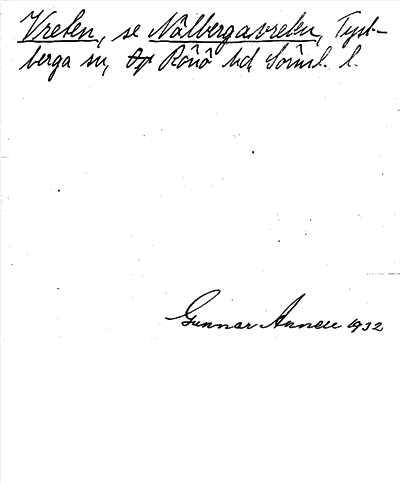 Vreten, se Nälbergavreten, Tyst-
berga sn, Rönö hd, Sörml. l.
Gunnar Annell 1932